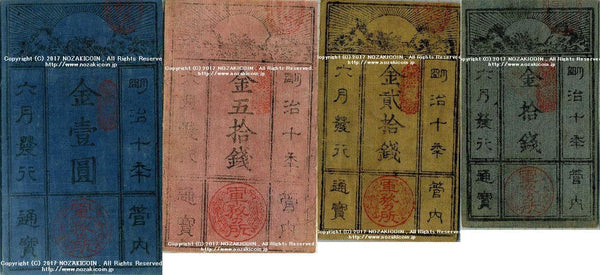 Copyright (C) 2017 NOZAKICOIN , All Rights Reserved
http://www.nozakicoin.jp
明治十年
管内
金壹圓
六月發行
通寶
Copyright (C) 2017 NOZAKICOIN , All Rights Reserved.
http://www.nozakicoin.jp
明治十年
管内
金五拾錢
六月發行
通寶
軍務所
Copyright (C) 2017 NOZAKICOIN , All Rights Reserved.
http://www.nozakicoin.jp
Copyright (C) 2017 NOZAKICOIN , All Rights Reserved.
http://www.nozakicoin.jp
明治十年
管内
金貳拾錢
六月發行
通寶
軍務所
Copyright (C) 2017 NOZAKICOIN , All Rights Reserved.
http://www.nozakicoin.jp
Copyright (C) 2017 NOZAKICOIN , All Rights Reserved
http://www.nozakicoin.jp
明治十年
管内
壹拾錢
六月發行
通寶